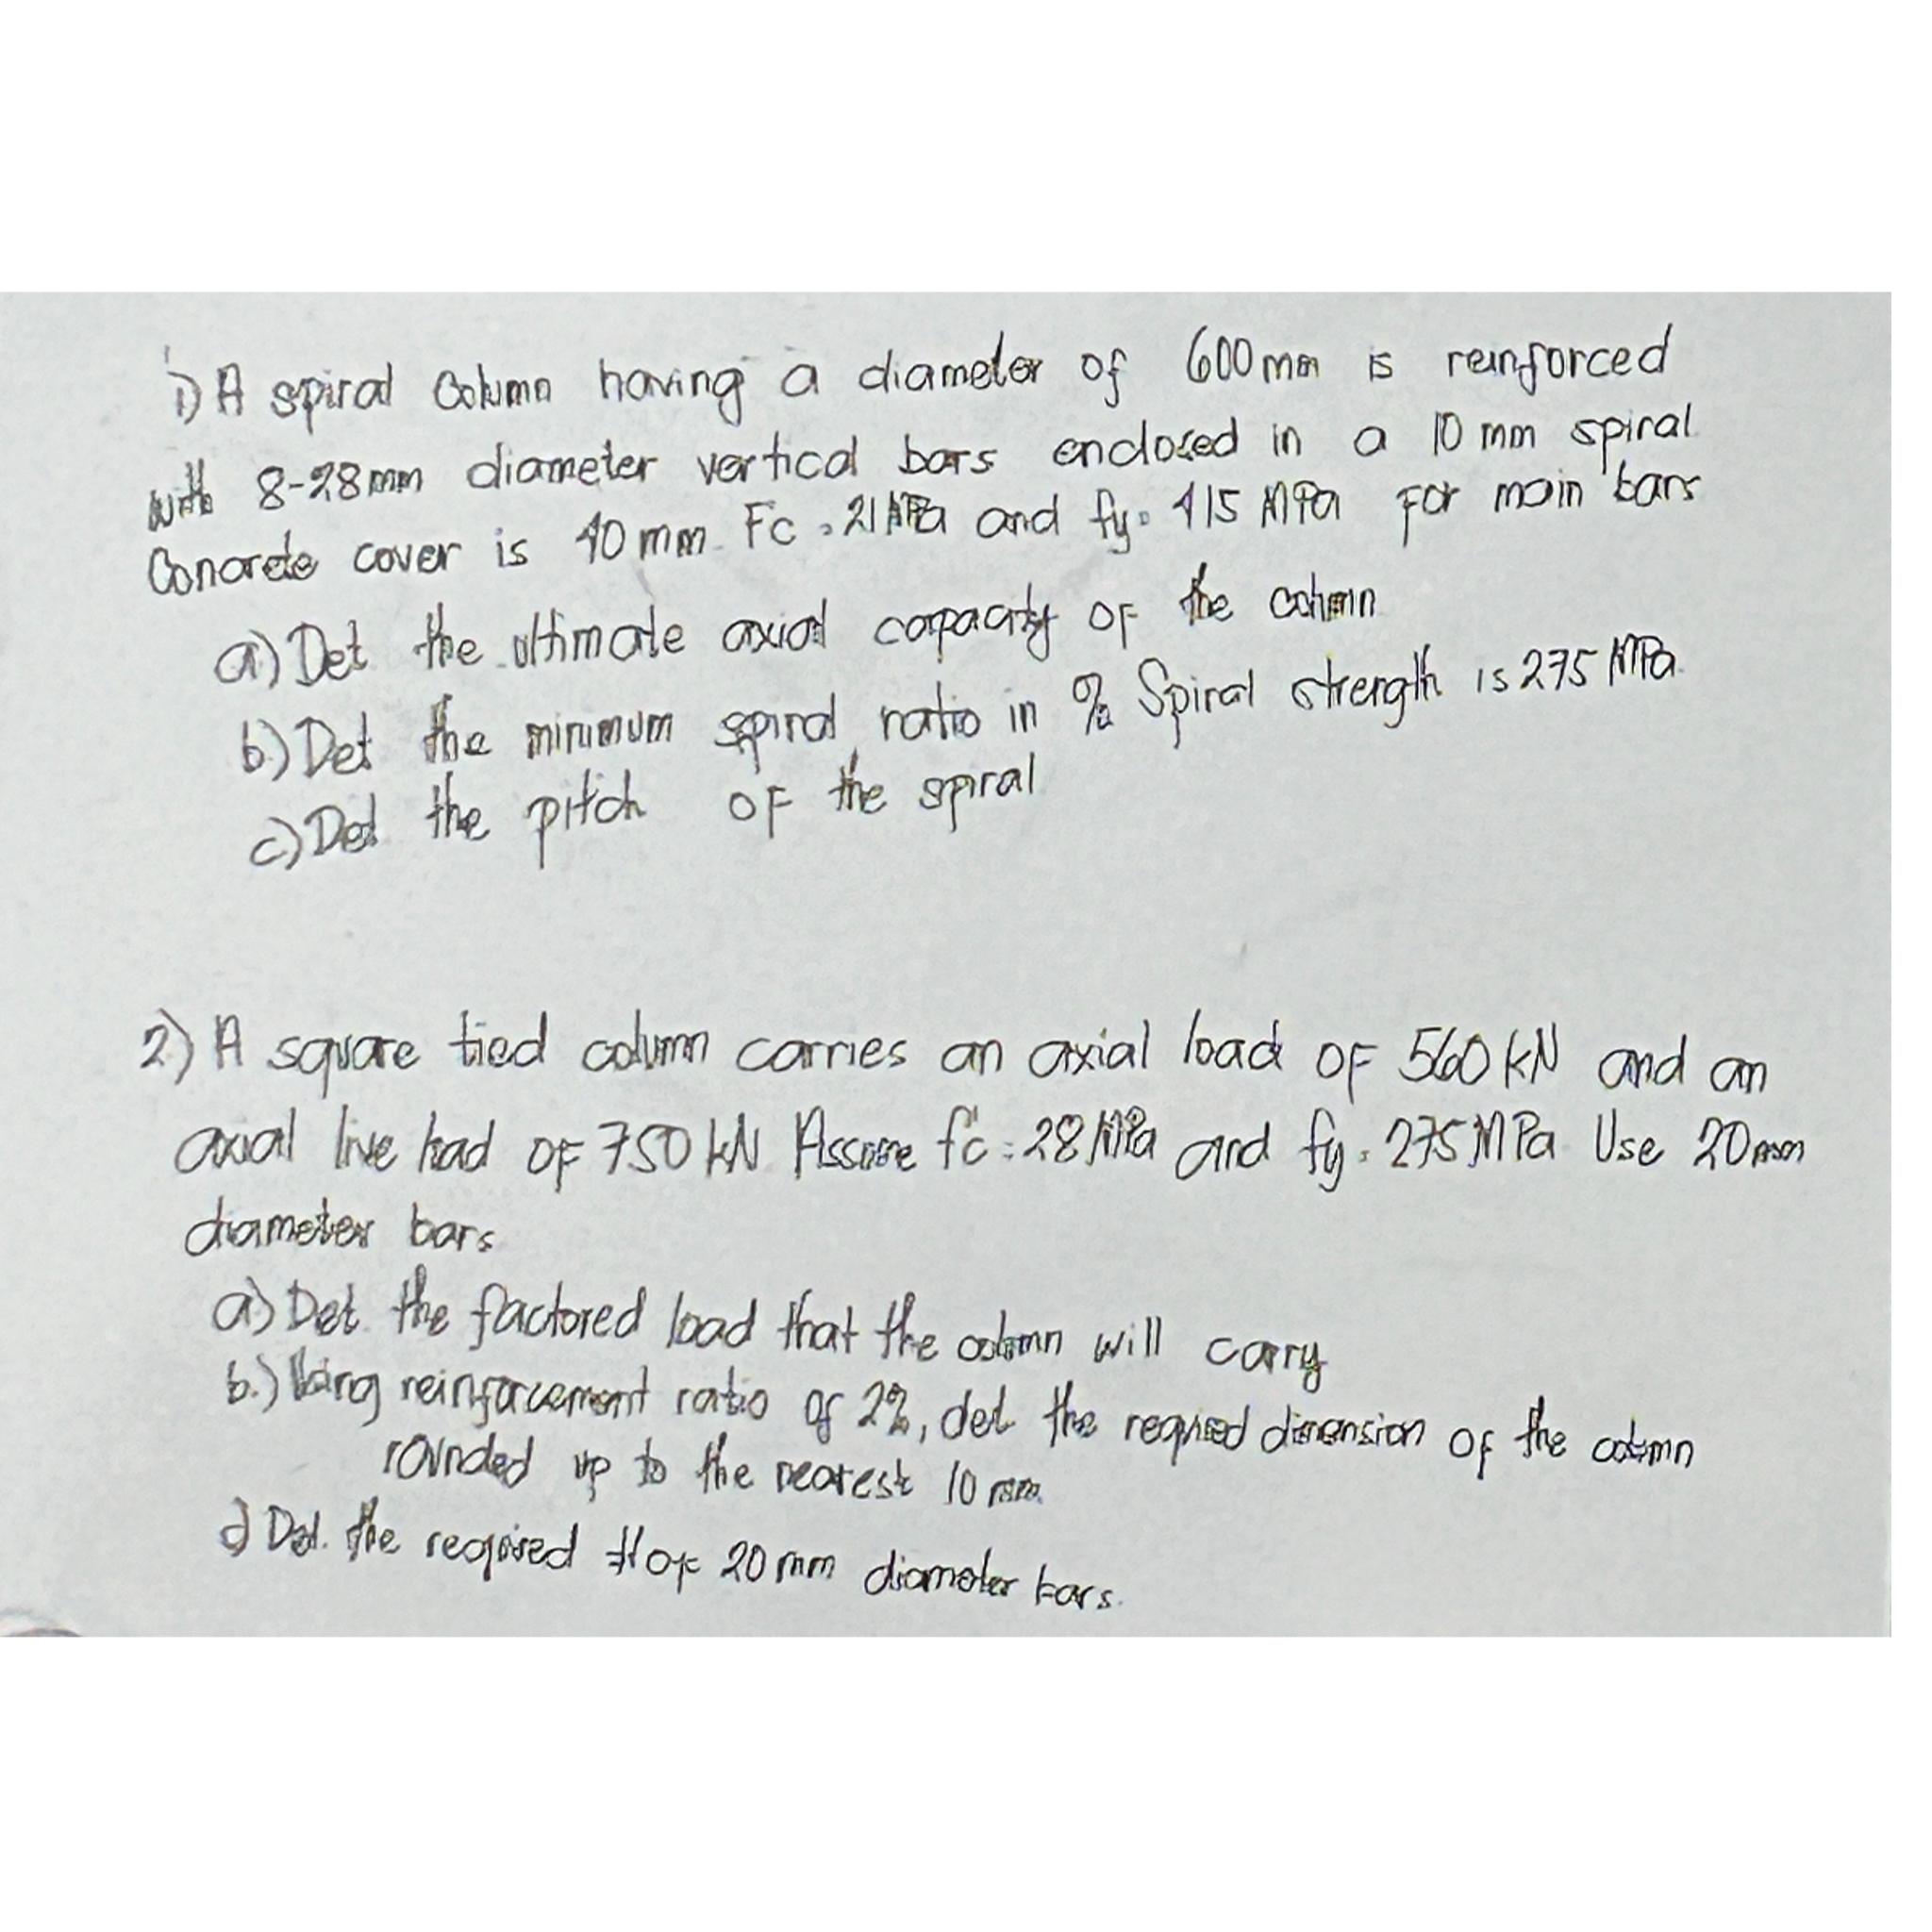 1) A spiral Column having a diameter of 600 mm is reinforced
with 8-28 mm diameter vertical bars enclosed in a 10 mm spiral.
Concrete cover is 40 mm. Fc = 21 MPa and fy = 415 MPa For main bars
a) Det the ultimate axial capacity OF the column
b.) Det the minimum spiral ratio in % Spiral strength is 275 MPa.
c) Det the pitch OF the spiral
2) A square tied column carries an axial load OF 560 kN and an
axial live load OF 750 kN Assume fc' = 28 MPa and fy = 275 MPa. Use 20 mm
diameter bars
a) Det. the factored load that the column will carry
b.) Using reinforcement ratio of 2%, det the required dimension OF the column
rounded up to the nearest 10 mm.
c) Det. the required # OF 20 mm diameter bars.